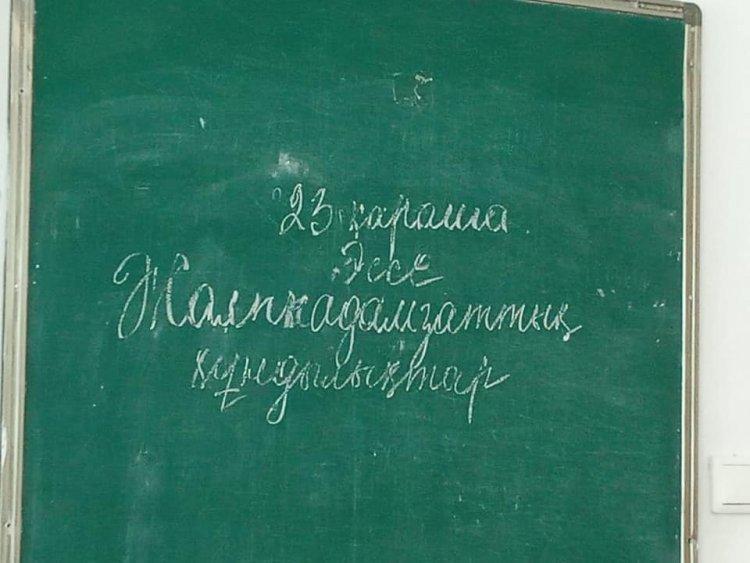 23 қараша
Эссе
Жалпкадамзаттық
құндылықтар